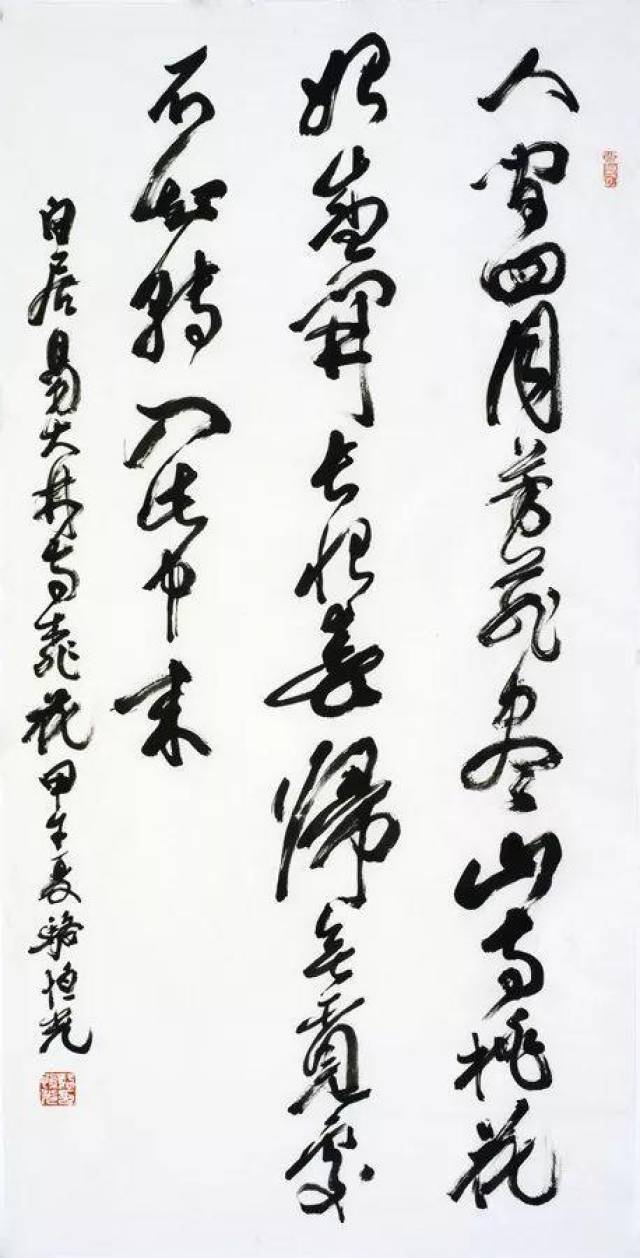 人間四月芳菲盡山寺桃花
始盛開長恨春歸無覓處
不知轉入此中來
白居易大林寺桃花甲午夏駱恒光